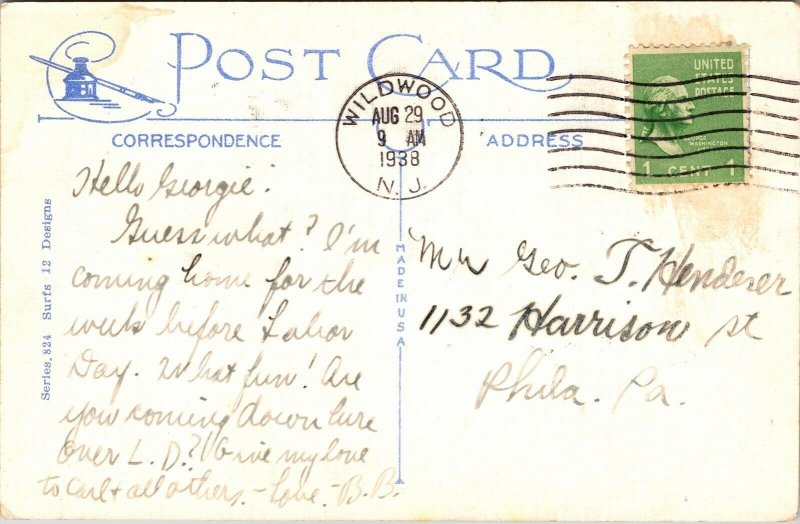 POST CARD
WILDWOOD
AUG 29
9 AM
1938
N. J.
UNITED
STATES
POSTAGE
GEORGE
WASHINGTON
1 CENT 1
CORRESPONDENCE
ADDRESS
Hello Georgie:
Guess what? I'm
coming home for the
week before Labor
Day. What fun! Are
you coming down here
over L. D.? Give my love
to Carl + all others. - Love - B.B.
Series. 824 Surfs 12 Designs
MADE IN USA
Mr Geo. T. Hendeser
1132 Harrison st
Phila. Pa.